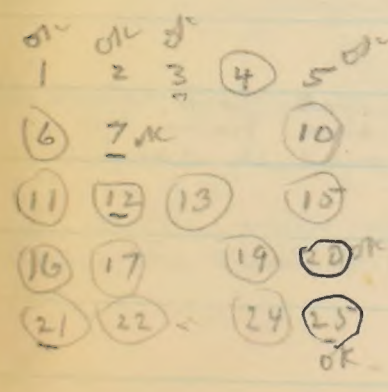 ok ok ok
1 2 3 4 5 ok
6 7 ok 10
11 12 13 15
16 17 19 20 ok
21 22 24 25
ok